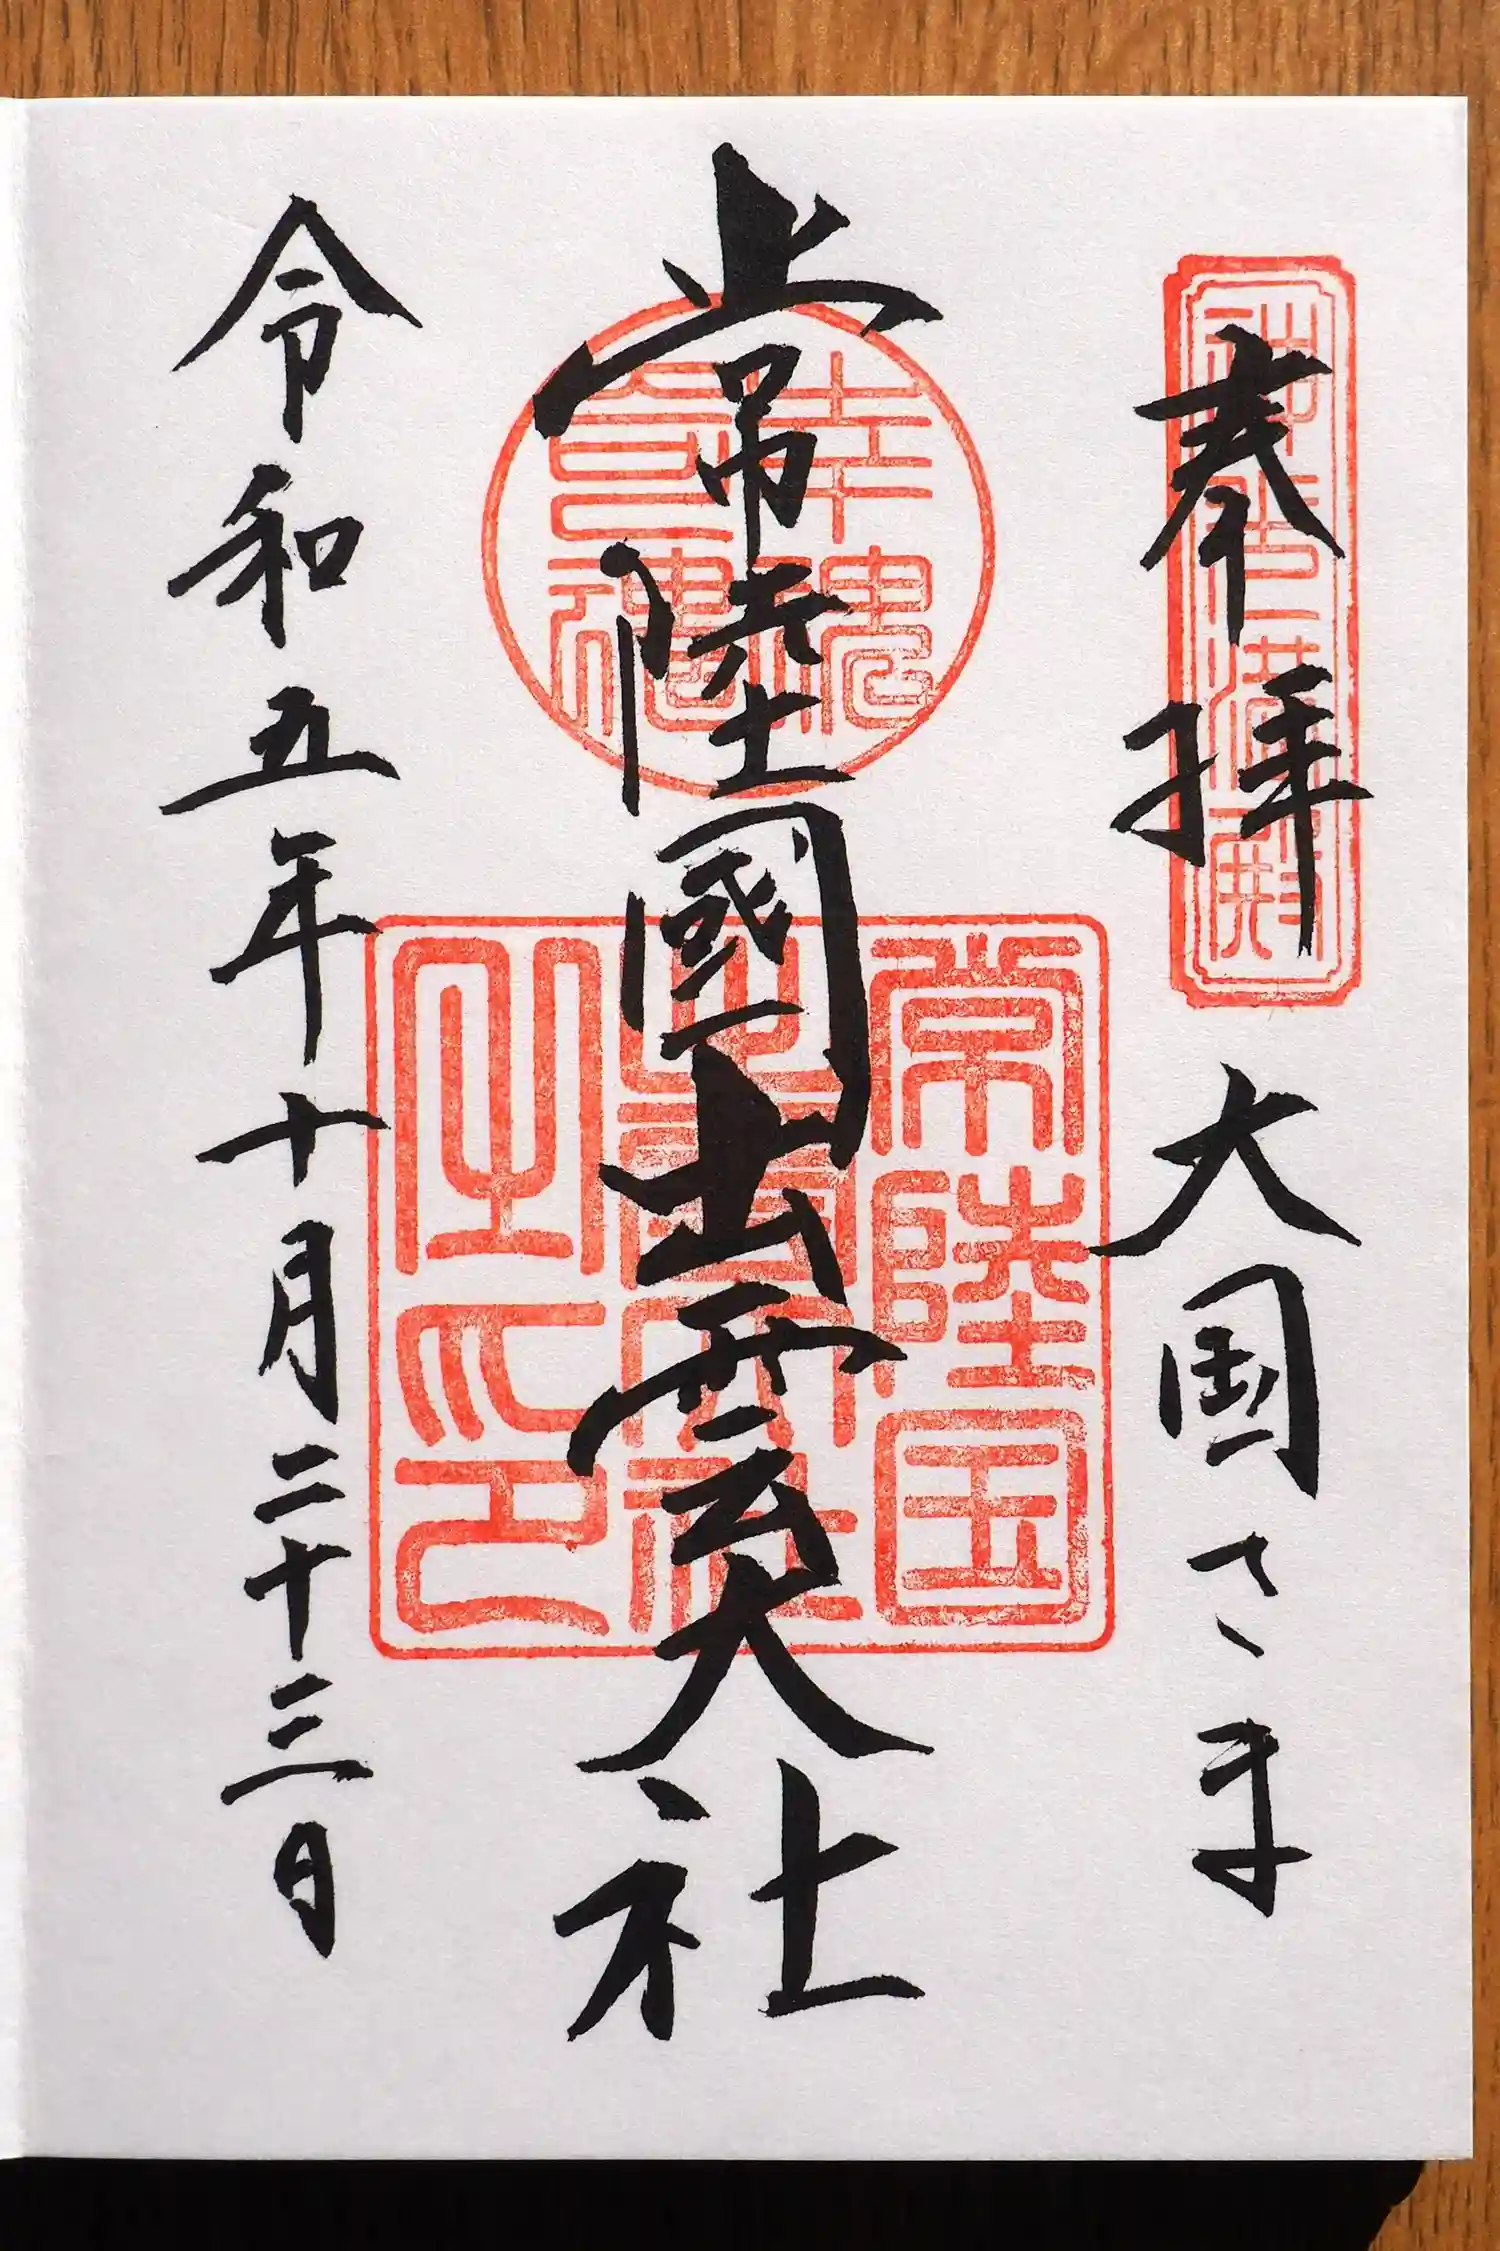 奉拝 大国さま
常陸國出雲大社
令和五年十月二十三日
幸魂
常陸国
出雲大社
之印